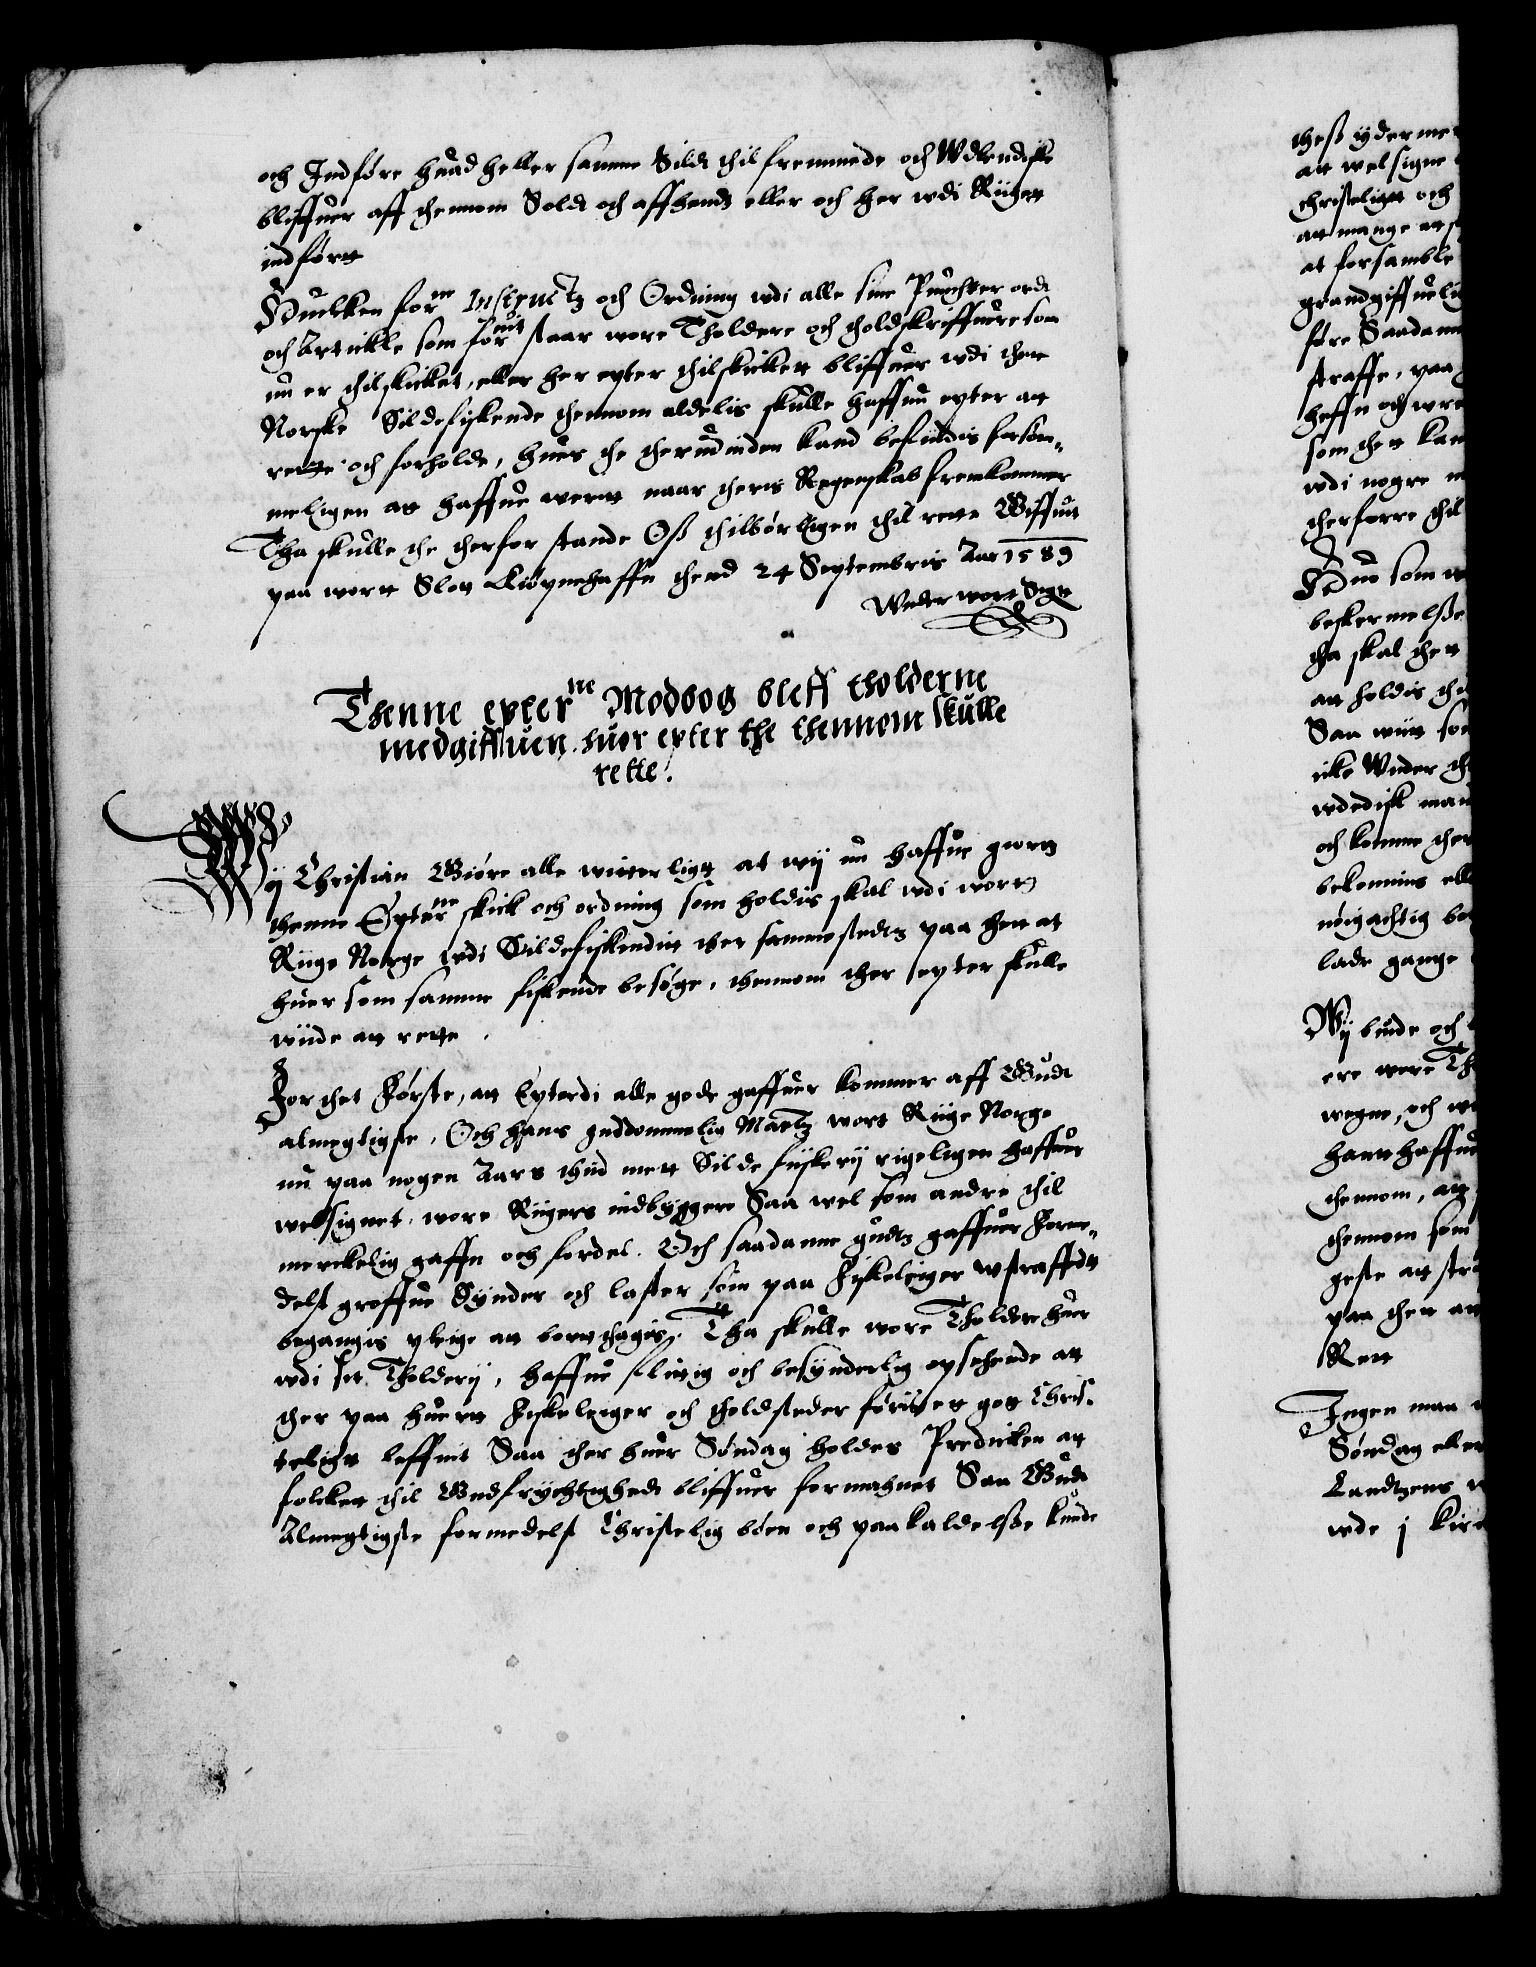 och Indføre huad heller samme Sildt thil fremmede och Wdlendiske
bliffuer aff thennom Soldt och affhendt eller och her wdi Riigett
indførtt
Huilcken forne Instructz och Ordning wdi alle sine Puncther ordt
och Artickle som forsuit staar wore Tholdere och tholdskriffuere som
nu er thilskicket, eller her epter thilskickett bliffuer wdi thett
Norske Sildefiskende thennom aldelis skulle haffue epter att
rette och forholde, huis the therudinden kand befindis forsøm¬
meligen att haffue werett naar theris Regenskab fremkommer
Tha skulle the therfor stande Oss thilbørligen thil rette Giffuit
paa wortt Slott Kiøpnehaffn thend 24 Septembris Aar 1589
Wnder wort Segn
Thenne epterne Modbog bleff tholderne
medgiffuen, huor epter the thennom skulle
rette.
Wy Christian Giøre alle witterligt at wy nu haffue giortt
thenne Epterne skick och ordning som holdis skal wdi wortt
Riige Norge wdi Sildefiskendit ther sammestedtz paa thett at
huer som samme fiskende besøge, thennom ther epter skulle
wiide att rette.
For thet Første, att Epterdi alle gode gaffuer kommer aff Gudt
almegtigste, Och hans guddommelig Matz wort Riige Norge
nu paa nogen Aars thid mett Silde fiiskerij rigeligen haffuer
welsignet, wore Riigers indbyggere Saa wel som andre thil
merckelig gaffn och fordel. Och saadanne gudtz gaffuer Forme¬
delst groffue Synder och laster som paa Fiskeleger wstraffedt
begangis pleige att borttthagis. Tha skulle wore Tholdere huer
wdi sit Tholderij, haffue flittig och besynderlig opseende att
ther paa huertt Fiskeleger och tholdsteder føris ett gott Chris¬
teligt leffnit Saa ther huer Søndag holdes Predicken att
folckett thil Gudfrychtighedt bliffuer formahnet Saa Gudt
Almegtigste formedelst Christelig bøen och paakaldelsse kunde
thess ydermere
att welsigne
christeligt och
att mange att
at forsamble
grandgiffuelig
føre Saadann
straffe, paa
heffn och wre
som thett kan
wdi nogre
therforre thil
Huo som
beskermelsse
tha skal thett
att holdis
Saa wiitt som
icke Wnder
wdedisk man
och komme ther
bekommis
nøigachtig
lade gange
Wy biude och
ere wore
wegne, och
hannt haffue
thennom, att
thennom som
geste att
paa thett
Rett
Ingen maa
Søndag eller
Landtzens
wde j kirc